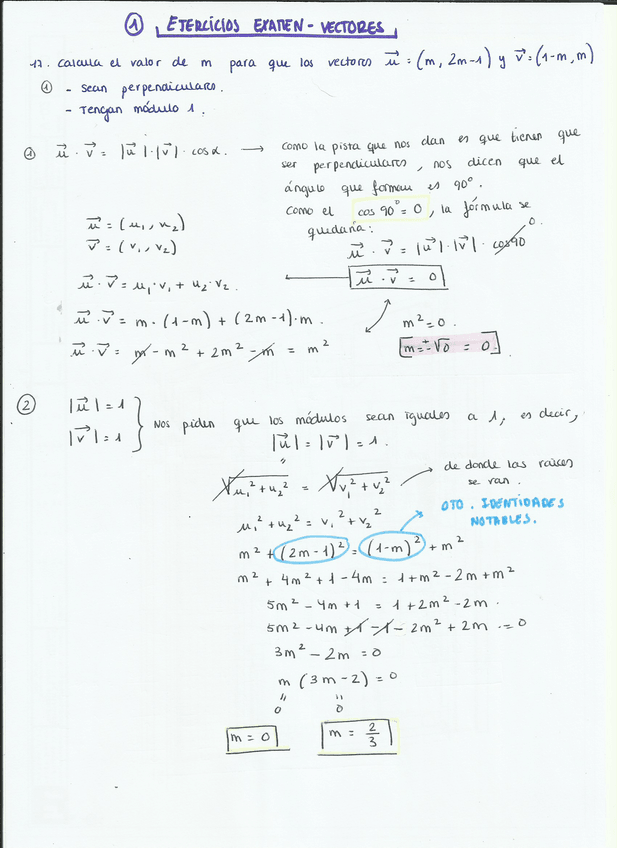 ① EJERCICIOS EXAMEN - VECTORES
17. Calcula el valor de m para que los vectores u⃗ = (m, 2m-1) y v⃗ = (1-m, m)
① - sean perpendiculares.
- Tengan módulo 1.
① u⃗ · v⃗ = |u⃗| · |v⃗| · cos α. → como la pista que nos dan es que tienen que
ser perpendiculares, nos dicen que el
ángulo que forman es 90°.
como el cos 90° = 0, la fórmula se
quedaría:
u⃗ = (u₁, u₂)
v⃗ = (v₁, v₂)
u⃗ · v⃗ = |u⃗| · |v⃗| · cos 90 0
u⃗ · v⃗ = u₁·v₁ + u₂·v₂. ← u⃗ · v⃗ = 0
u⃗ · v⃗ = m · (1-m) + (2m-1) · m. m² = 0.
u⃗ · v⃗ = m - m² + 2m² - m = m² m = ±√0 = 0.
② |u⃗| = 1
|v⃗| = 1 } Nos piden que los módulos sean iguales a 1, es decir,
|u⃗| = |v⃗| = 1.
"
√u₁² + u₂² = √v₁² + v₂² → de donde las raíces
se van.
u₁² + u₂² = v₁² + v₂² OTO. IDENTIDADES
NOTABLES.
m² + (2m-1)² = (1-m)² + m²
m² + 4m² + 1 - 4m = 1 + m² - 2m + m²
5m² - 4m + 1 = 1 + 2m² - 2m.
5m² - 4m + 1 - 1 - 2m² + 2m = 0
3m² - 2m = 0
m (3m - 2) = 0
" "
0 0
m = 0 m = 2/3